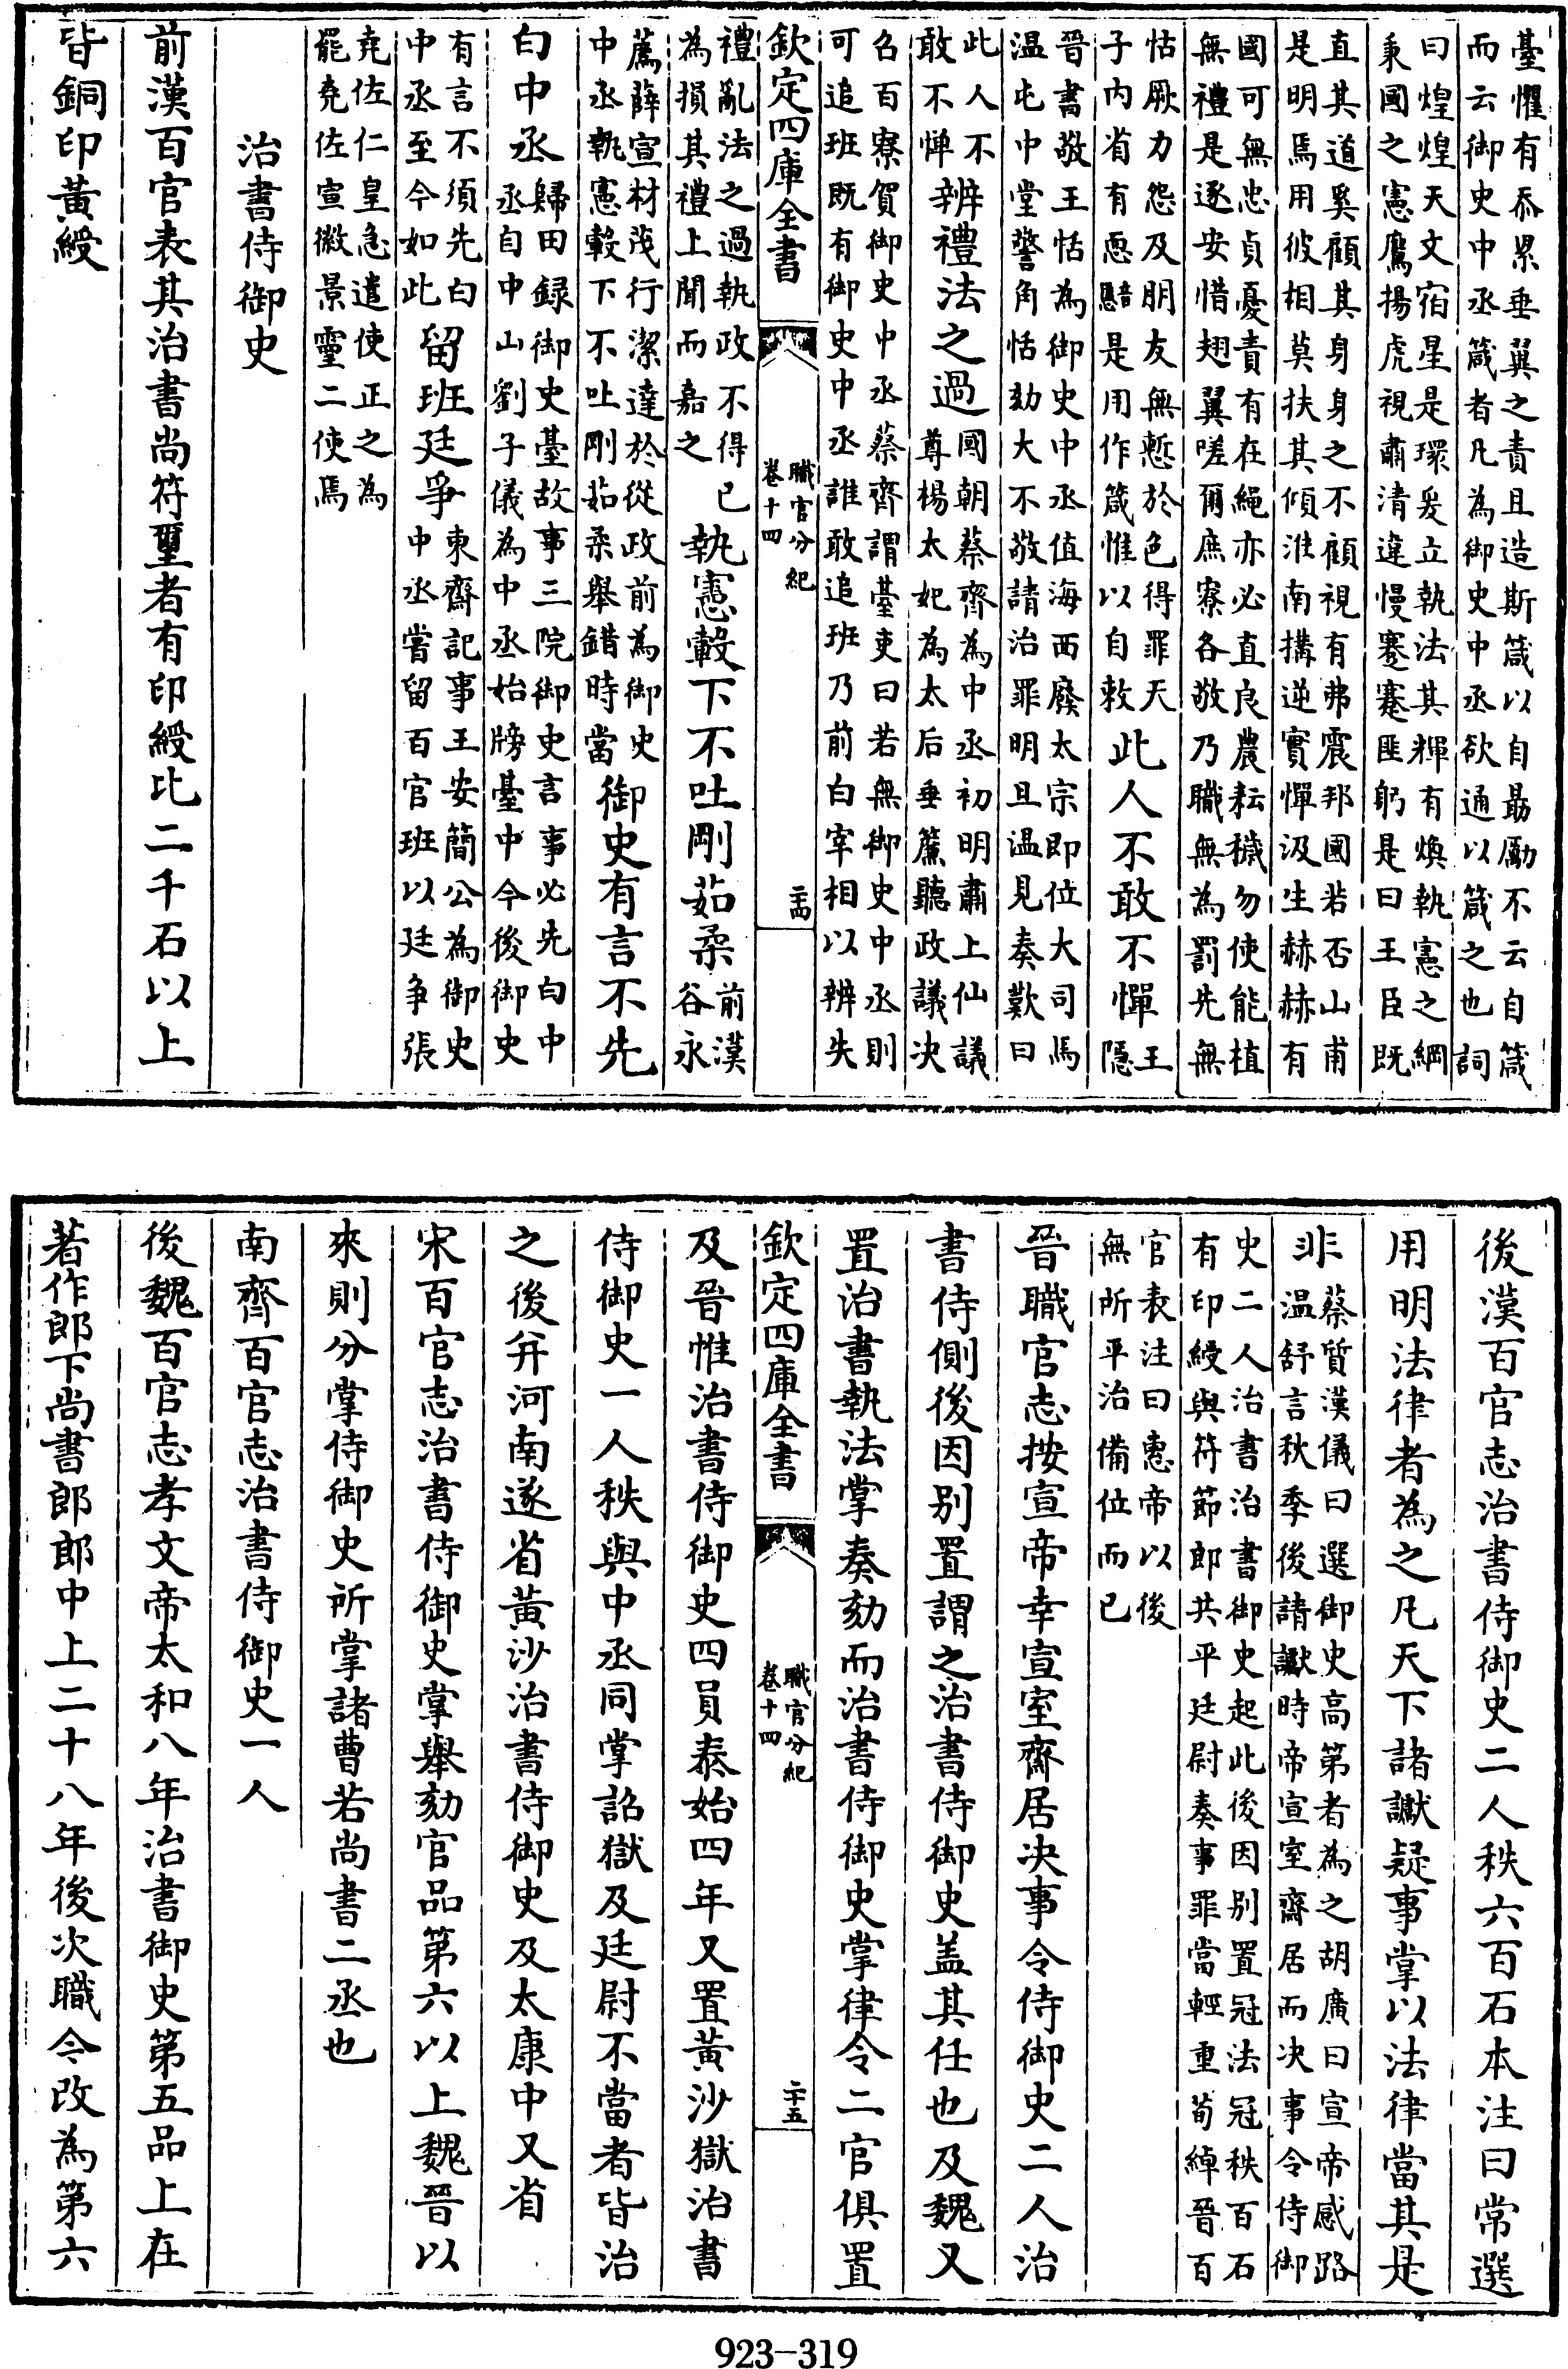 臺懼有忝累垂翼之責且造斯箴以自勗勵不云自箴
而云御史中丞箴者凡為御史中丞欲通以箴之也詞
曰煌煌天文宿星是環爰立執法其輝有煥執憲之綱
秉國之憲鷹揚虎視肅清違慢蹇蹇匪躬是曰王臣既
直其道奚顧其身身之不顧視有弗震邦國若否山甫
是明焉用彼相莫扶其傾淮南搆逆實憚汲生赫赫有
國可無忠貞憂責有在繩亦必直良農耘穢勿使能植
無禮是逐安惜翅翼嗟爾庶寮各敬乃職無為罰先無
怙厥力怨及朋友無慙於色得罪天
子內省有恧黯是用作箴惟以自敕
此人不敢不憚
王
隱
晉書敬王恬為御史中丞值海西廢太宗即位大司馬
温屯中堂警角恬劾大不敬請治罪明旦温見奏歎曰
此人不
敢不憚
辨禮法之過
國朝蔡齊為中丞初明肅上仙議
尊楊太妃為太后垂簾聽政議决
召百寮賀御史中丞蔡齊謂臺吏曰若無御史中丞則
可追班既有御史中丞誰敢追班乃前白宰相以辨失
欽定四庫全書
職官分紀
卷十四
二十四
禮亂法之過執政不得已
為損其禮上聞而嘉之
執憲轂下不吐剛茹柔
前漢
谷永
薦薛宣材茂行潔達於從政前為御史
中丞執憲轂下不吐剛茹柔舉錯時當
御史有言不先
白中丞
歸田録御史臺故事三院御史言事必先白中
丞自中山劉子儀為中丞始牓臺中今後御史
有言不須先白
中丞至今如此
留班廷爭
東齋記事王安簡公為御史
中丞嘗留百官班以廷争張
堯佐仁皇急遣使正之為
罷堯佐宣徽景靈二使焉
治書侍御史
前漢百官表其治書尚符璽者有印綬比二千石以上
皆銅印黃綬
後漢百官志治書侍御史二人秩六百石本注曰常選
用明法律者為之凡天下諸讞疑事掌以法律當其是
非
蔡質漢儀曰選御史高第者為之胡廣曰宣帝感路
温舒言秋季後請讞時帝宣室齋居而决事令侍御
史二人治書治書御史起此後因别置冠法冠秩百石
有印綬與符節郎共平廷尉奏事罪當輕重荀綽晉百
官表注曰惠帝以後
無所平治備位而已
晉職官志按宣帝幸宣室齋居决事令侍御史二人治
書侍側後因别置謂之治書侍御史盖其任也及魏又
置治書執法掌奏劾而治書侍御史掌律令二官俱置
欽定四庫全書
職官分紀
卷十四
二十五
及晉惟治書侍御史四員泰始四年又置黃沙獄治書
侍御史一人秩與中丞同掌詔獄及廷尉不當者皆治
之後并河南遂省黃沙治書侍御史及太康中又省
宋百官志治書侍御史掌舉劾官品第六以上魏晉以
來則分掌侍御史所掌諸曹若尚書二丞也
南齊百官志治書侍御史一人
後魏百官志孝文帝太和八年治書御史第五品上在
著作郎下尚書郎郎中上二十八年後次職令改為第六
923-319